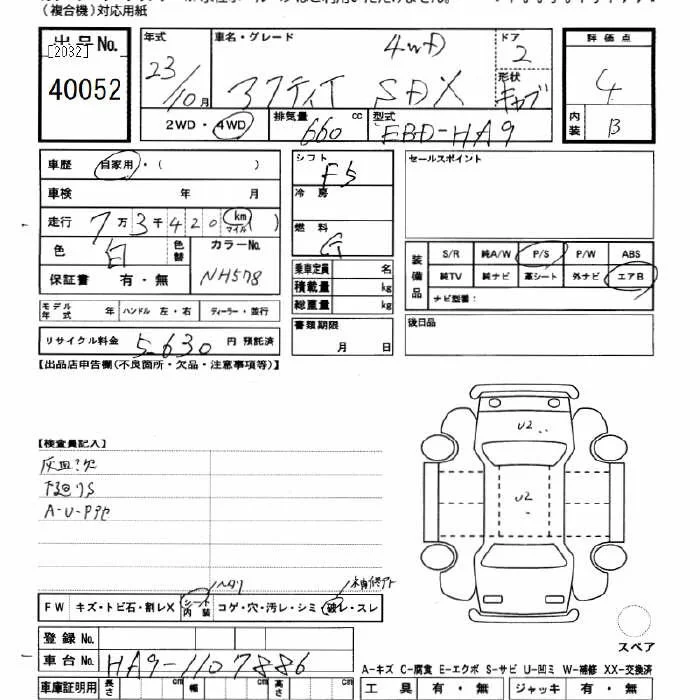 （複合機）対応用紙
出品No.
[2032]
40052
年式 23/10月
車名・グレード 4WD
アクティ SDX
ドア 2
形状 キャブ
2WD・4WD
排気量 660 cc
型式 EBD-HA9
評価点
4
内装 B
車歴 自家用・（ ）
車検 年 月
走行 7万3千420 km マイル( )
色 白 色替 カラーNo. NH578
保証書 有・無
モデル年式 年 ハンドル 左・右 ディーラー・並行
リサイクル料金 5630 円 預託済
シフト F5
冷房
燃料 G
乗車定員 名
積載量 kg
総重量 kg
書類期限
月 日
セールスポイント
装備品 S/R 純A/W P/S P/W ABS
純TV 純ナビ 革シート 外ナビ エアB
ナビ型番：
後日品
【出品店申告欄(不良箇所・欠品・注意事項等)】
【検査員記入】
灰皿欠
下回りS
A-U-P
U2
U2
ヘタリ
補修アト
FW キズ・トビ石・割レX シート内装 コゲ・穴・汚レ・シミ 破レ・スレ
登録 No.
車台 No. HA9-1107886
車庫証明用 長さ cm 幅 cm 高さ cm
スペア
A-キズ C-腐食 E-エクボ S-サビ U-凹ミ W-補修 XX-交換済
工具 有・無 ジャッキ 有・無